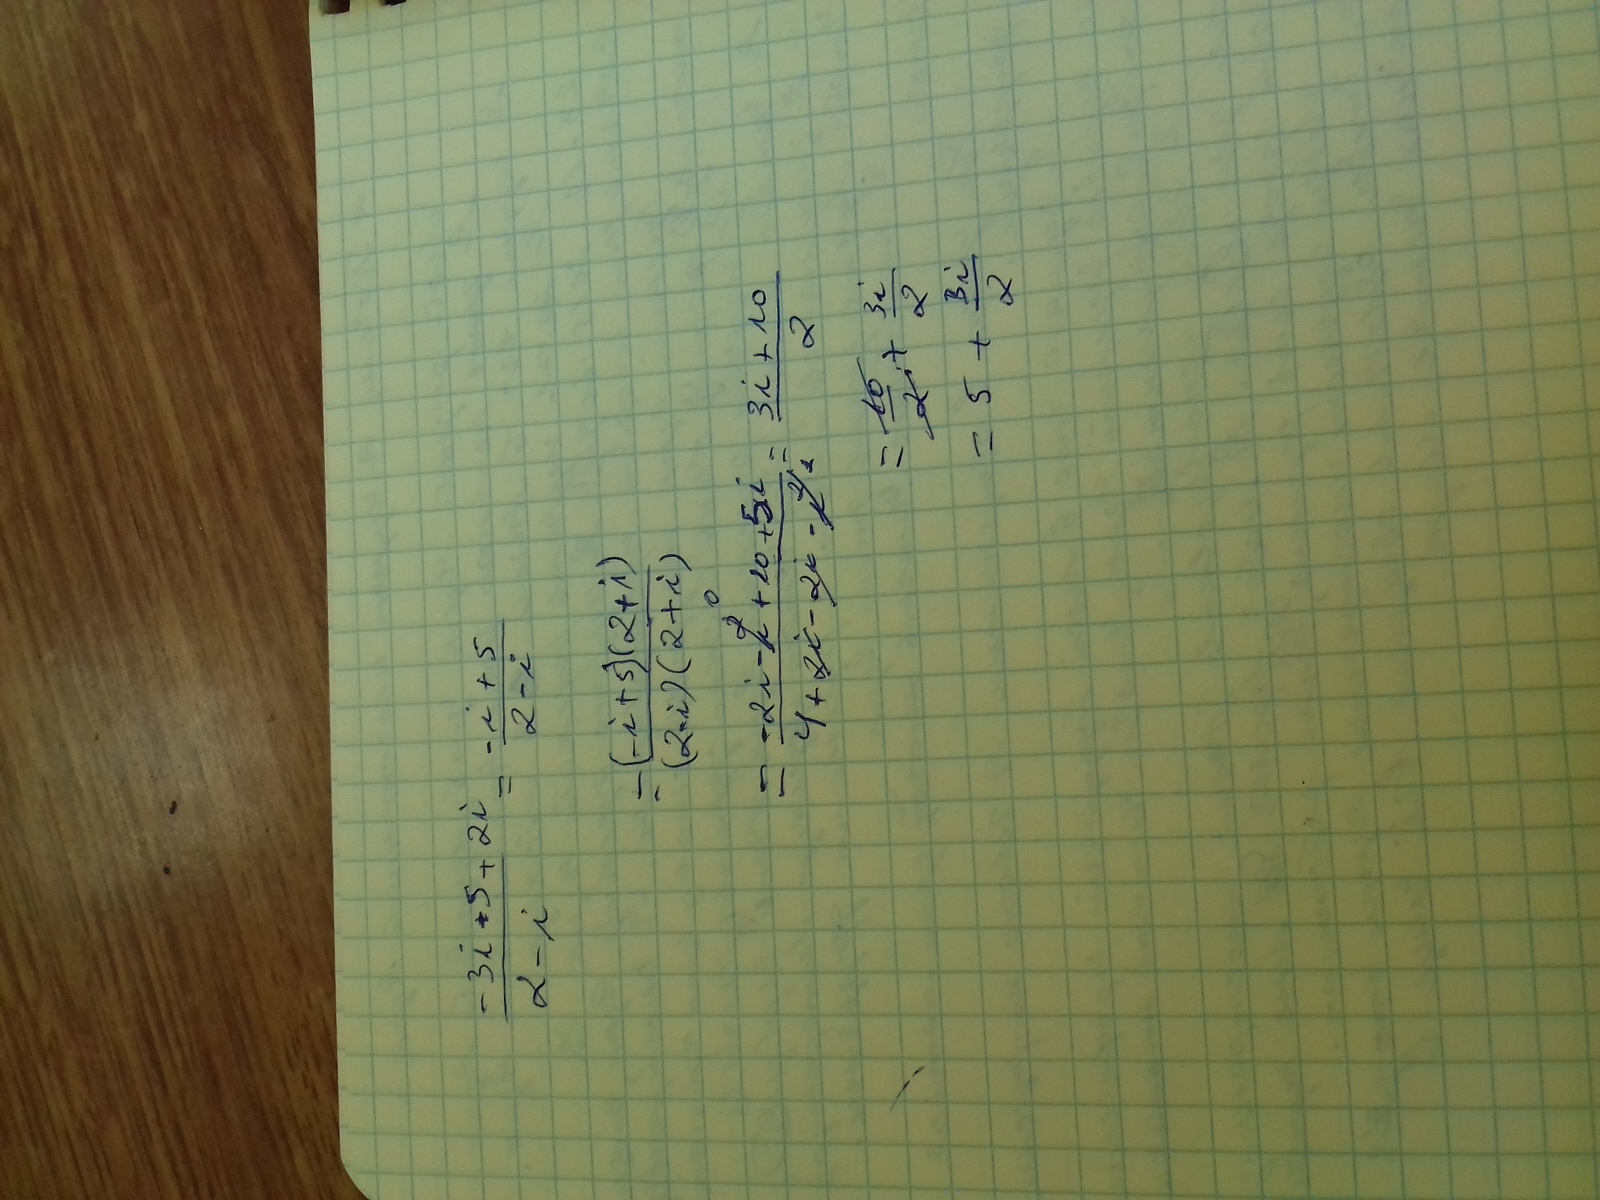 (-3i+5+2i)/(2-i) = (-i+5)/(2-i)
= ((-i+5)(2+i))/((2-i)(2+i))
= (-2i-i²+10+5i)/(4+2i-2i-i²) = (3i+10)/2
= 10/2 + 3i/2
= 5 + 3i/2